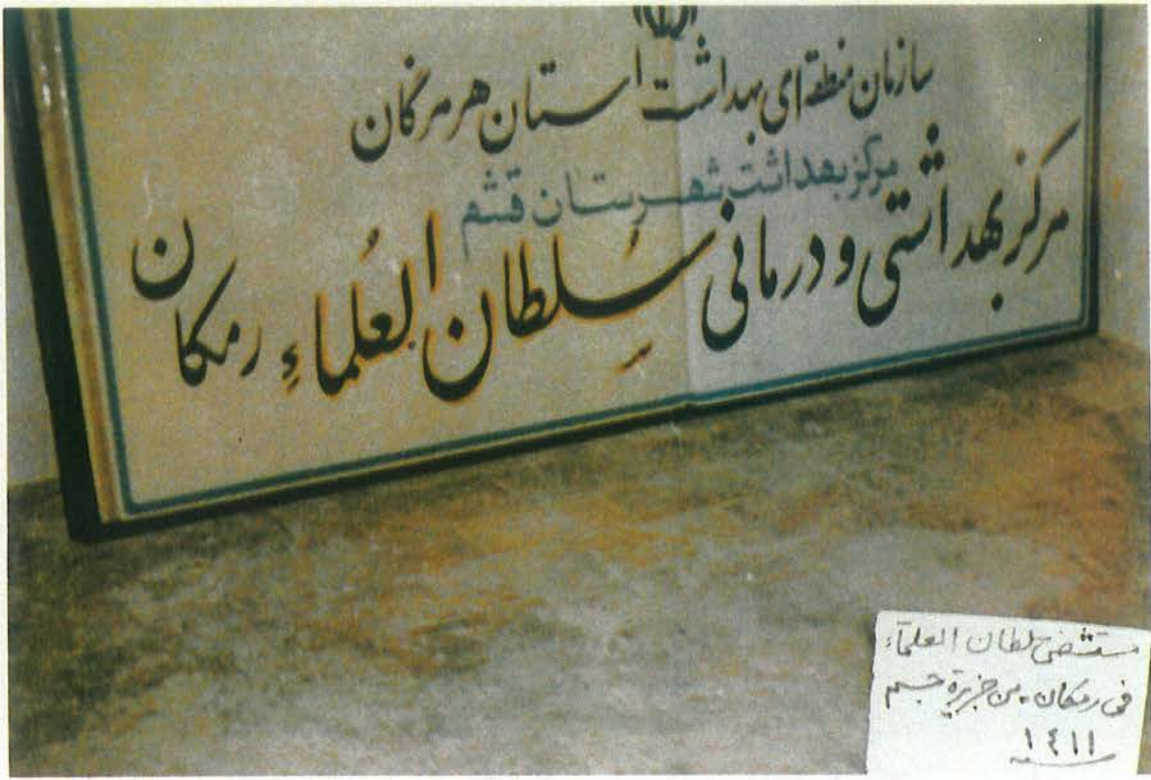 سازمان منطقه‌ای بهداشت استان هرمزگان
مرکز بهداشت شهرستان قشم
مرکز بهداشتی و درمانی سُلطان العُلماءِ رمکان
مستشفى سلطان العلماء
في رمكان - من جزيرة جسم
سنه ١٤١١